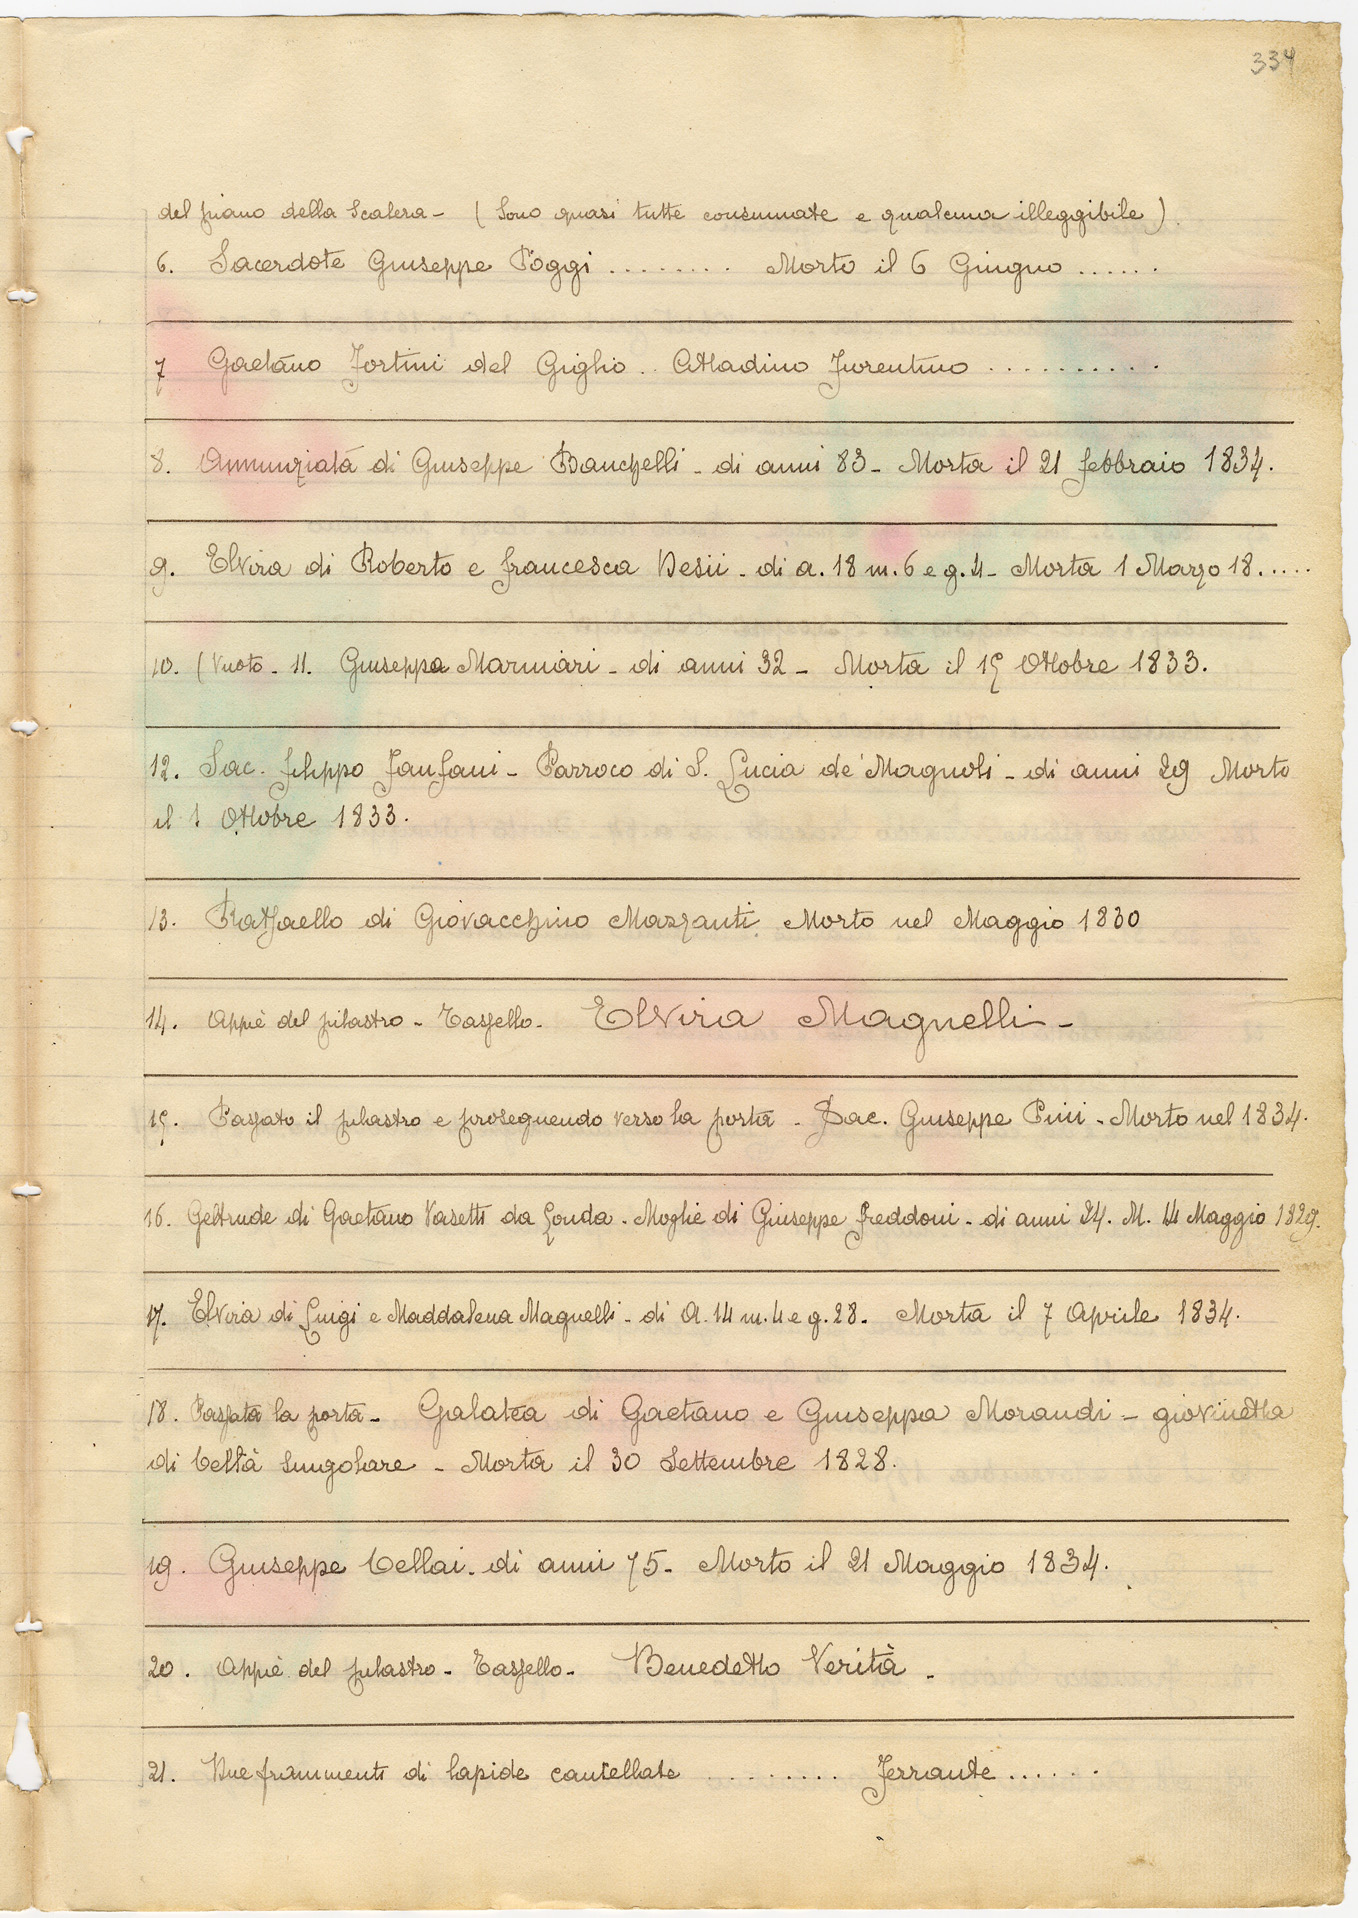 334
del piano della Scalera - (Sono quasi tutte consumate e qualcuna illeggibile).
6. Sacerdote Giuseppe Poggi ........ Morto il 6 Giugno ......
7 Gaetano Fortini del Giglio .. Cittadino Fiorentino ..........
8. Annunziata di Giuseppe Banchelli - di anni 83 - Morta il 21 febbraio 1834.
9. Elvira di Roberto e francesca Desii - di a. 18 m. 6 e g. 4 - Morta 1 Marzo 18.....
10. (Vuoto - 11. Giuseppa Marmiari - di anni 32 - Morta il 15 Ottobre 1833.
12. Sac. filippo Fanfani - Parroco di S. Lucia de' Magnoli - di anni 29 Morto
il 1 Ottobre 1833.
13. Raffaello di Giovacchino Mazzanti. Morto nel Maggio 1830
14. Appiè del pilastro - Tassello - Elvira Magnelli -
15. Passato il pilastro e proseguendo verso la porta - Sac. Giuseppe Pini - Morto nel 1834.
16. Geltrude di Gaetano Vasetti da Londa - Moglie di Giuseppe freddoni - di anni 24. M. 14 Maggio 1829.
17. Elvira di Luigi e Maddalena Magnelli - di A. 14 m. 4 e g. 28. Morta il 7 Aprile 1834.
18. Passata la porta - Galatea di Gaetano e Giuseppa Morandi - giovinetta
di beltà singolare - Morta il 30 Settembre 1828.
19. Giuseppe Cellai - di anni 75 - Morto il 21 Maggio 1834.
20. Appiè del pilastro - Tassello - Benedetto Verità -
21. Due frammenti di lapide cancellate ......... Ferrante ......